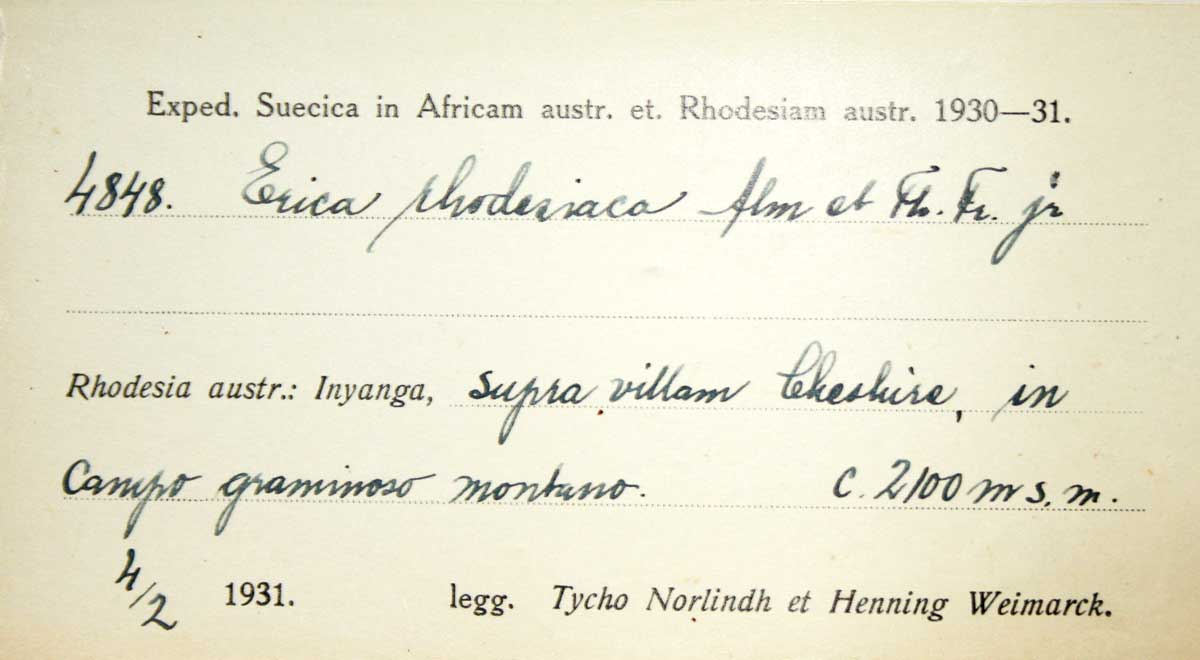 Exped. Suecica in Africam austr. et. Rhodesiam austr. 1930—31.
4848. Erica rhodesiaca Alm et Th. Fr. jr
Rhodesia austr.: Inyanga, supra villam Cheshire, in
Campo graminoso montano. c. 2100 m s. m.
4/2 1931. legg. Tycho Norlindh et Henning Weimarck.